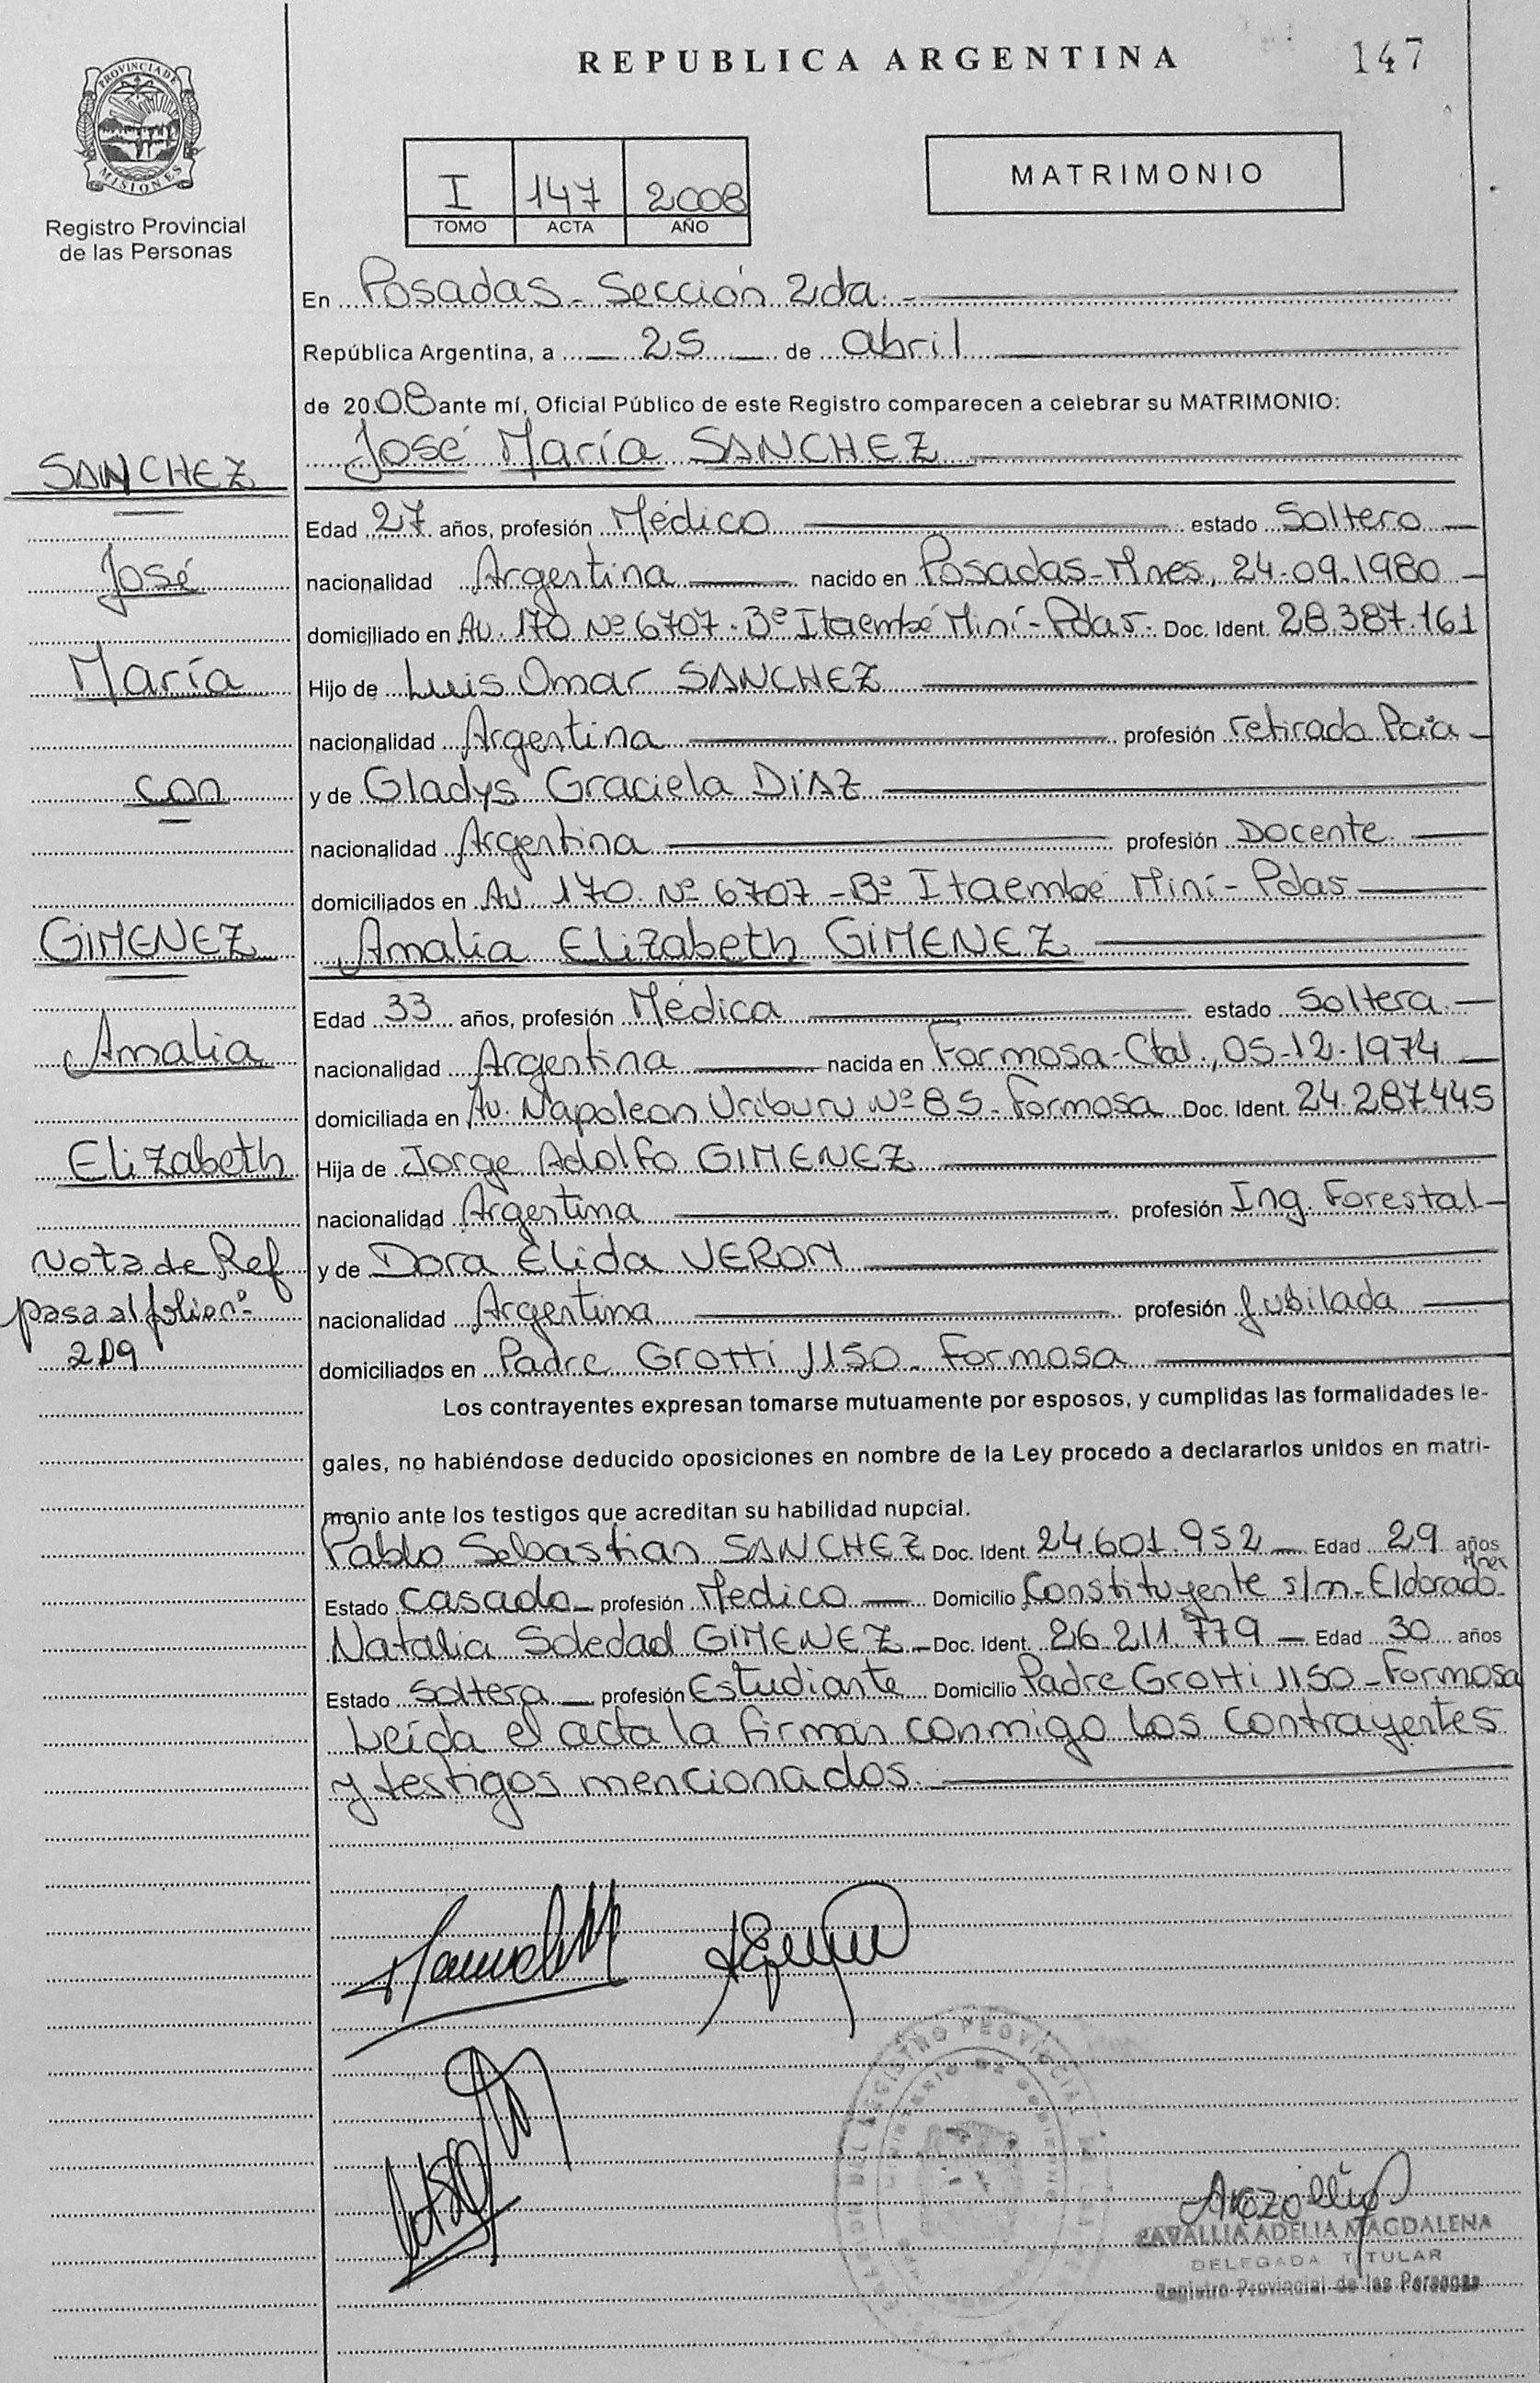 REPUBLICA ARGENTINA
147
PROVINCIA DE
MISIONES
Registro Provincial
de las Personas
I 147 2008
TOMO ACTA AÑO
MATRIMONIO
En Posadas - Sección 2da. -
República Argentina, a - 25 - de abril
de 2008 ante mí, Oficial Público de este Registro comparecen a celebrar su MATRIMONIO:
SANCHEZ
José María SANCHEZ
Edad 27 años, profesión Médico estado Soltero -
José
nacionalidad Argentina nacido en Posadas-Mnes, 24-09-1980 -
domiciliado en Av. 170 Nº 6707 - Bº Itaembé Miní - Pdas. Doc. Ident. 28.387.161
María
Hijo de Luis Omar SANCHEZ
nacionalidad Argentina profesión retirado Pcia -
con
y de Gladys Graciela DIAZ
nacionalidad Argentina profesión Docente.
domiciliados en Av. 170. Nº 6707 - Bº Itaembé Miní - Pdas
GIMENEZ
Amalia Elizabeth GIMENEZ
Edad 33 años, profesión Médica estado Soltera. -
Amalia
nacionalidad Argentina nacida en Formosa - Ctal., 05-12-1974 -
domiciliada en Av. Napoleon Uriburu Nº 85 - Formosa Doc. Ident. 24.287.445
Elizabeth
Hija de Jorge Adolfo GIMENEZ
nacionalidad Argentina profesión Ing. Forestal -
Nota de Ref
y de Dora Elida VERON
pasa al folio nº
nacionalidad Argentina profesión Jubilada
209
domiciliados en Padre Grotti 1150 - Formosa
Los contrayentes expresan tomarse mutuamente por esposos, y cumplidas las formalidades le-
gales, no habiéndose deducido oposiciones en nombre de la Ley procedo a declararlos unidos en matri-
monio ante los testigos que acreditan su habilidad nupcial.
Pablo Sebastian SANCHEZ Doc. Ident. 24.601.952 - Edad 29 años
Estado Casado - profesión Medico - Domicilio Constituyente s/n - Eldorado - Mnes
Natalia Soledad GIMENEZ - Doc. Ident. 26.211.779 - Edad 30 años
Estado Soltera - profesión Estudiante Domicilio Padre Grotti 1150 - Formosa
Leída el acta la firman conmigo los contrayentes
y testigos mencionados.
REGISTRO PROVINCIAL
MINISTERIO DE GOBIERNO
ZAVALLIA ADELIA MAGDALENA
DELEGADA TITULAR
Registro Provincial de las Personas